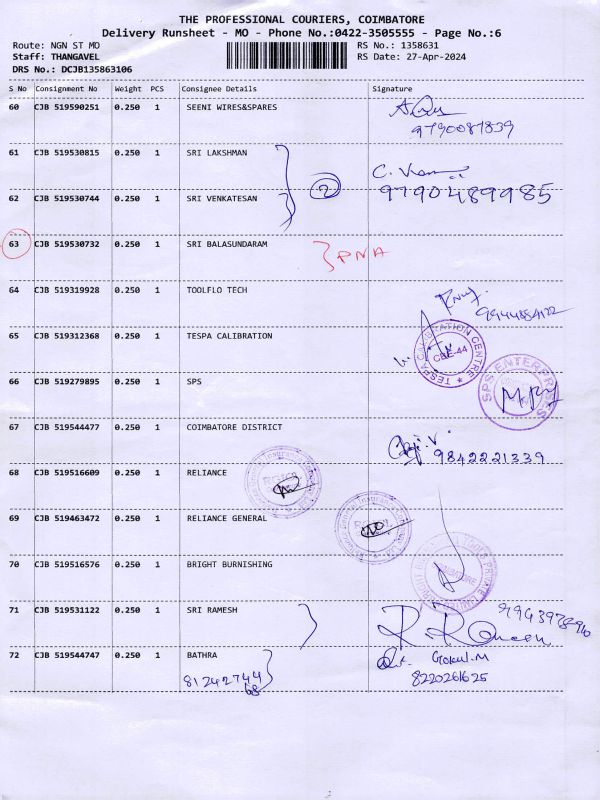 THE PROFESSIONAL COURIERS, COIMBATORE
Delivery Runsheet - MO - Phone No.:0422-3505555 - Page No.:6
Route: NGN ST MO
Staff: THANGAVEL
DRS No.: DCJB135863106
RS No.: 1358631
RS Date: 27-Apr-2024
S No Consignment No Weight PCS Consignee Details Signature
60 CJB 519590251 0.250 1 SEENI WIRES&SPARES
9790087839
61 CJB 519530815 0.250 1 SRI LAKSHMAN
2
9790489985
62 CJB 519530744 0.250 1 SRI VENKATESAN
63 CJB 519530732 0.250 1 SRI BALASUNDARAM
PNA
64 CJB 519319928 0.250 1 TOOLFLO TECH
9944884122
65 CJB 519312368 0.250 1 TESPA CALIBRATION
TESPA CALIBRATION CENTRE
CBE-44
66 CJB 519279895 0.250 1 SPS
SPS ENTERPRISES
67 CJB 519544477 0.250 1 COIMBATORE DISTRICT
9842221339
68 CJB 519516609 0.250 1 RELIANCE
69 CJB 519463472 0.250 1 RELIANCE GENERAL
70 CJB 519516576 0.250 1 BRIGHT BURNISHING
71 CJB 519531122 0.250 1 SRI RAMESH
72 CJB 519544747 0.250 1 BATHRA
Gokul.M
8220261625
81242744
68